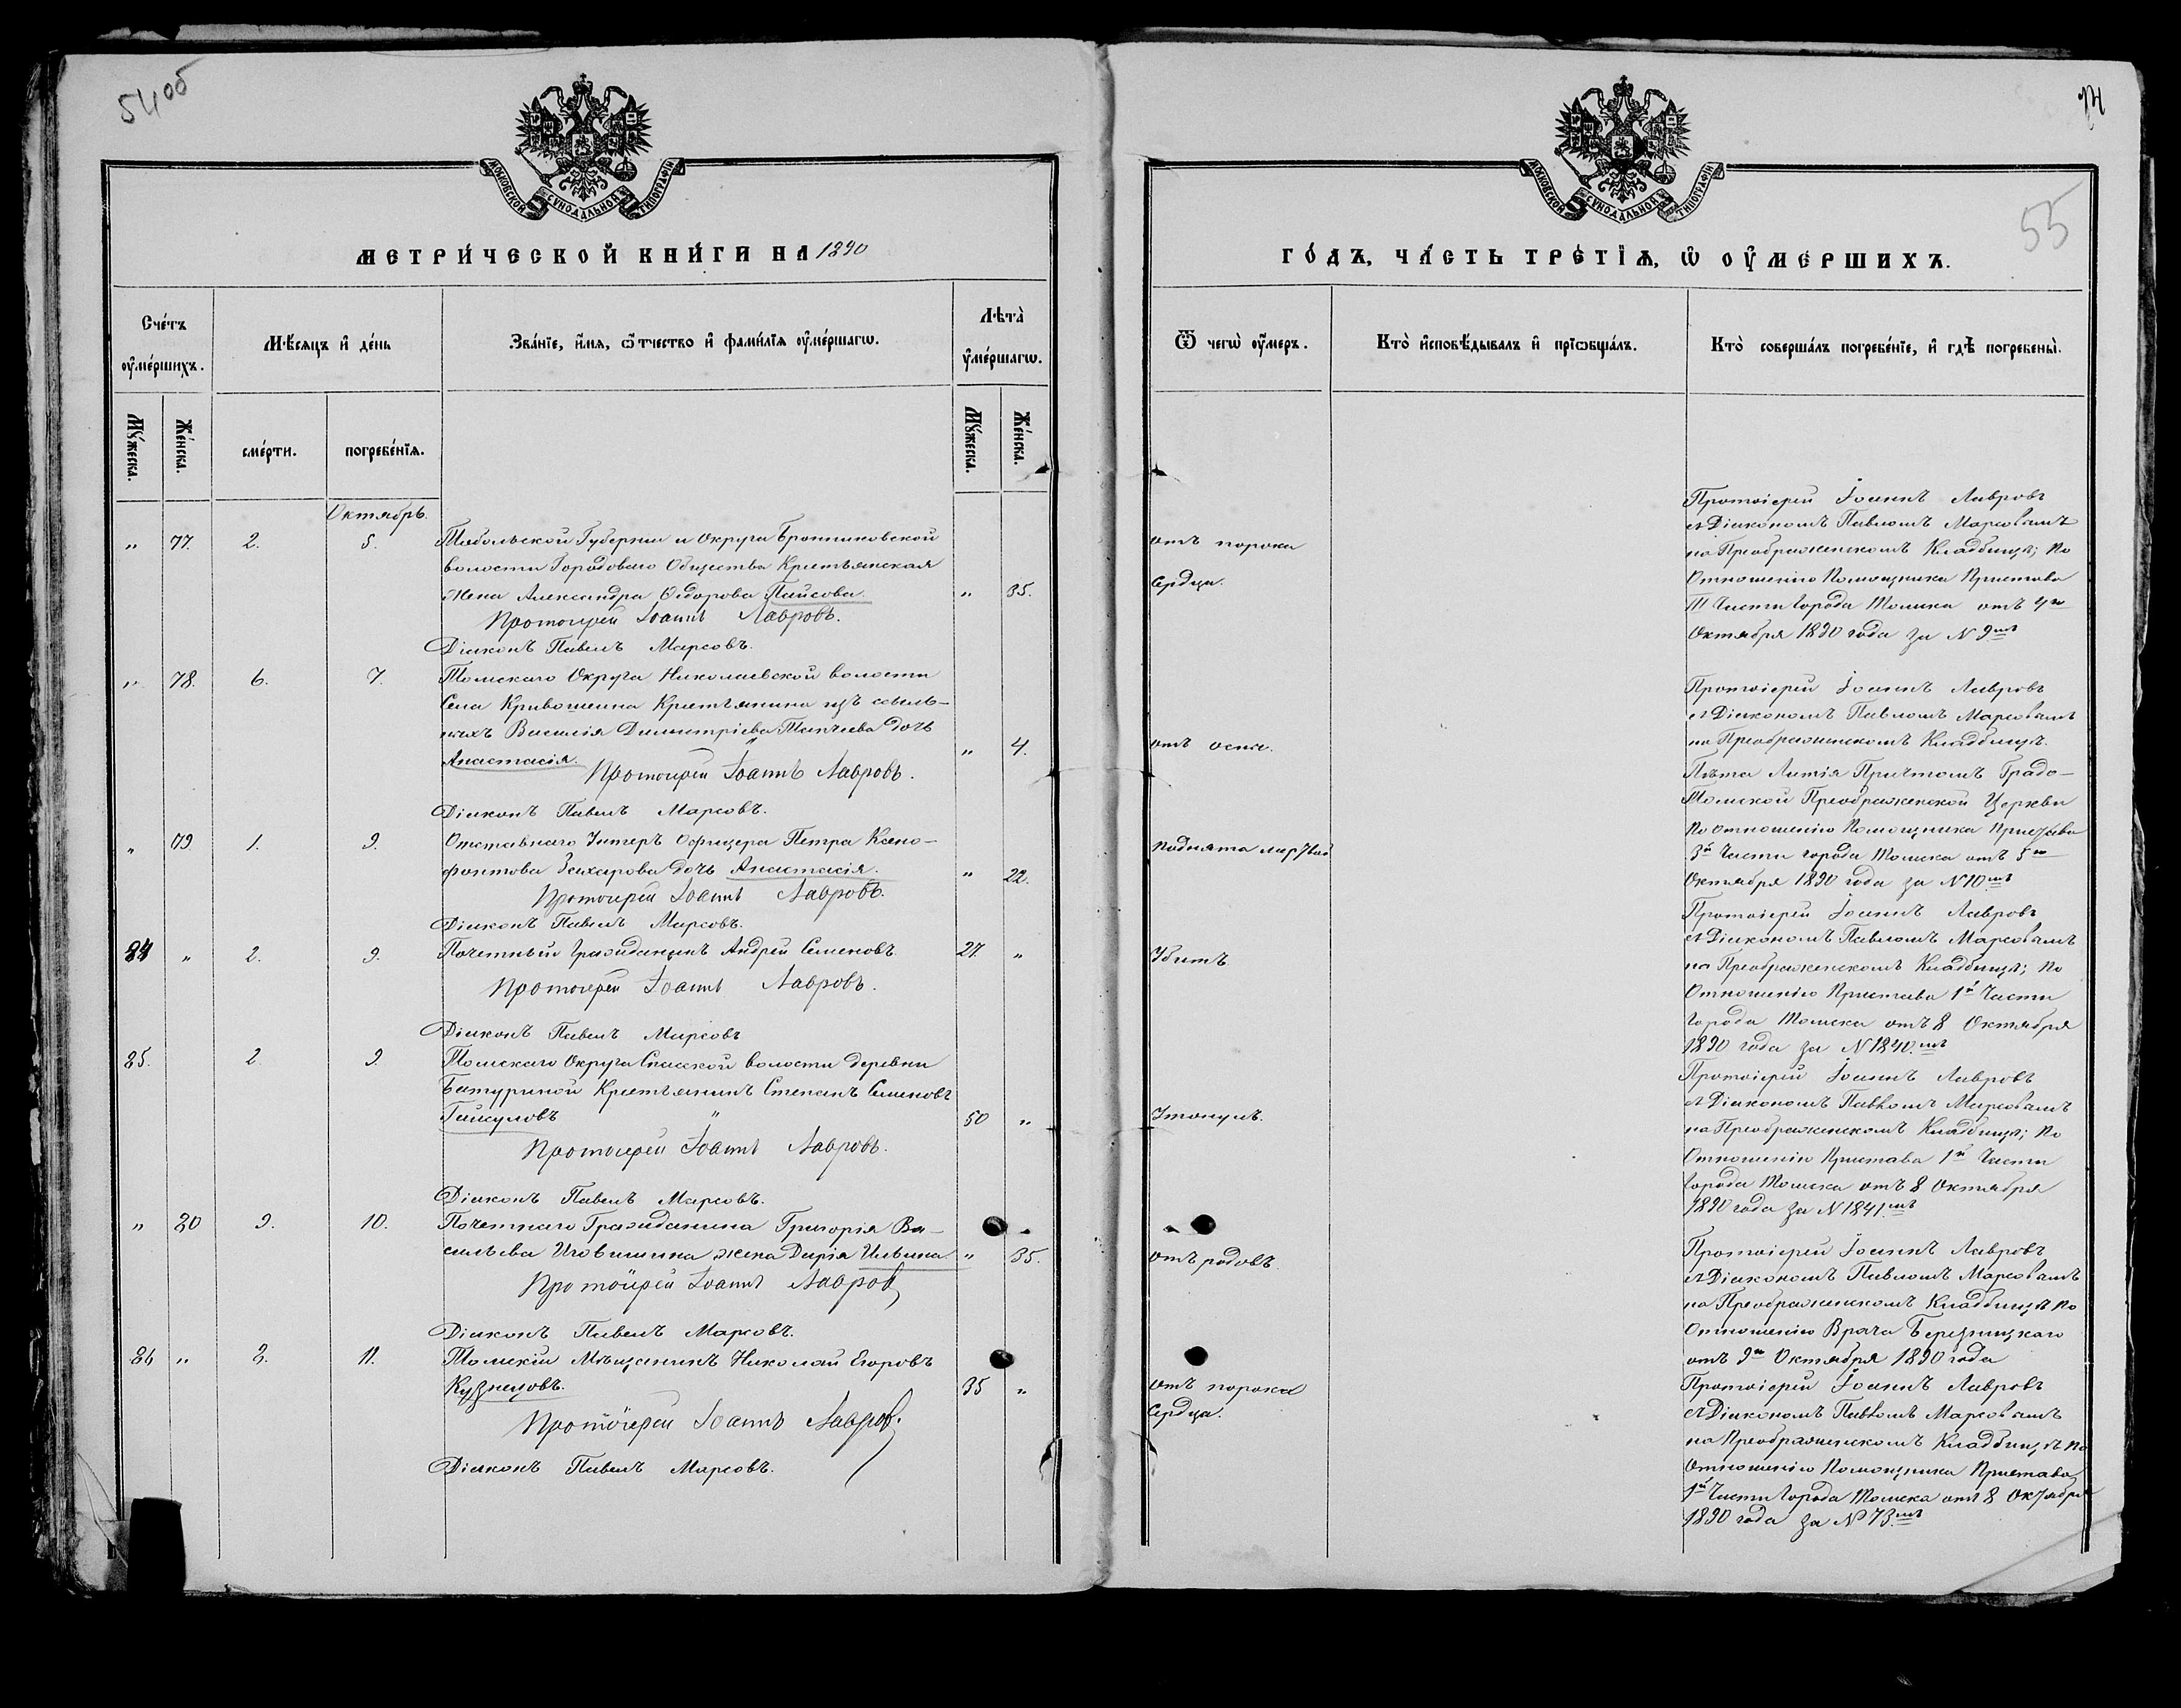 54об
МОСКОВСКОЙ СѴНОДАЛЬНОЙ ТИПОГРАФІИ
МЕТРИ́ЧЕСКОЙ КНИ́ГИ НА 1890
Сче́тъ ᲂу҆ме́ршихъ.
Мѣ́сяцъ и҆ де́нь
Зва́нїе, и҆́мя, ѻ҆́тчество и҆ фами́лїя ᲂу҆ме́ршагѡ.
Лѣта̀ ᲂу҆ме́ршагѡ.
Мꙋ́жеска.
Же́нска.
сме́рти.
погребе́нїѧ.
Мꙋ́жеска.
Же́нска.
Октябрь.
„ 77. 2. 5. Тобольской Губерніи и Округа Бронниковской
волости Городоваго Общества Крестьянская
Жена Александра Ѳедорова Пайсова. „ 35.
Протоіерей Іоаннъ Лавровъ.
Діаконъ Павелъ Марсовъ.
„ 78. 6. 7. Томскаго Округа Николаевской волости
Села Кривошеина Крестьянина изъ ссыль-
ныхъ Василія Димитріева дочь
Анастасія. „ 4.
Протоіерей Іоаннъ Лавровъ.
Діаконъ Павелъ Марсовъ.
„ 79 1. 9. Отставнаго Унтеръ Офицера Петра Ксено-
фонтова дочь Анастасія. „ 22.
Протоіерей Іоаннъ Лавровъ.
Діаконъ Павелъ Марсовъ.
84 „ 2. 9. Почетный гражданинъ Андрей Семеновъ. 27. „
Протоіерей Іоаннъ Лавровъ.
Діаконъ Павелъ Марсовъ
85. 2 9. Томскаго Округа Спасской волости деревни
Батуриной Крестьянинъ Степанъ Семеновъ
Гайсуловъ „ 50 „
Протоіерей Іоаннъ Лавровъ.
Діаконъ Павелъ Марсовъ.
„ 80 9. 10. Почетнаго Гражданина Григорія Ва-
сильева жена Дарія Ильина „ 35.
Протоіерей Іоаннъ Лавров
Діаконъ Павелъ Марсовъ.
86 „ 8. 11. Томскій Мѣщанинъ Николай Егоровъ
Кузнецовъ. 35 „
Протоіерей Іоаннъ Лавров.
Діаконъ Павелъ Марсовъ.
55
МОСКОВСКОЙ СѴНОДАЛЬНОЙ ТИПОГРАФІИ
ГО́ДЪ, ЧА́СТЬ ТРЕ́ТЇѦ, Ѡ҆ ОУ҆МЕ́РШИХЪ.
Ѿ чегѡ̀ ᲂу҆́меръ.
Кто̀ и҆сповѣ́дывалъ и҆ прїѡбща́лъ.
Кто̀ соверша́лъ погребе́нїе, и҆ гдѣ̀ погребены̀.
отъ порока
Сердца.
Протоіерей Іоаннъ Лавровъ
съ Діакономъ Павломъ Марсовымъ
на Преображенскомъ Кладбищѣ; По
Отношенію Помощника Пристава
III Части Города Томска отъ 4го
Октября 1890 года за N 9мъ
отъ оспы.
Протоіерей Іоаннъ Лавровъ
съ Діакономъ Павломъ Марсовымъ
на Преображенскомъ Кладбищѣ.
поднята мертвой
Пѣта Литія Причтомъ Градо-
Томской Преображенской Церкви
По отношенію Помощника Пристава
3й Части города Томска отъ 5го
Октября 1890 года за N 10мъ
Убитъ.
Протоіерей Іоаннъ Лавровъ
съ Діакономъ Павломъ Марсовымъ
на Преображенскомъ Кладбищѣ; По
Отношенію Пристава 1й Части
Города Томска отъ 8 Октября
1890 года за N 1840.мъ
Утонулъ.
Протоіерей Іоаннъ Лавровъ
съ Діакономъ Павломъ Марсовымъ
на Преображенскомъ Кладбищѣ; По
Отношенію Пристава 1й Части
Города Томска отъ 8 Октября
1890 года за N 1841.мъ
отъ родовъ.
Протоіерей Іоаннъ Лавровъ
съ Діакономъ Павломъ Марсовымъ
на Преображенскомъ Кладбищѣ По
Отношенію Врача Березницкаго
отъ 9го Октября 1890 года
отъ порока
Сердца.
Протоіерей Іоаннъ Лавровъ
съ Діакономъ Павломъ Марсовымъ
на Преображенскомъ Кладбищѣ По
Отношенію Помощника Пристава
1й Части Города Томска отъ 8 Октября
1890 года за N 73.мъ